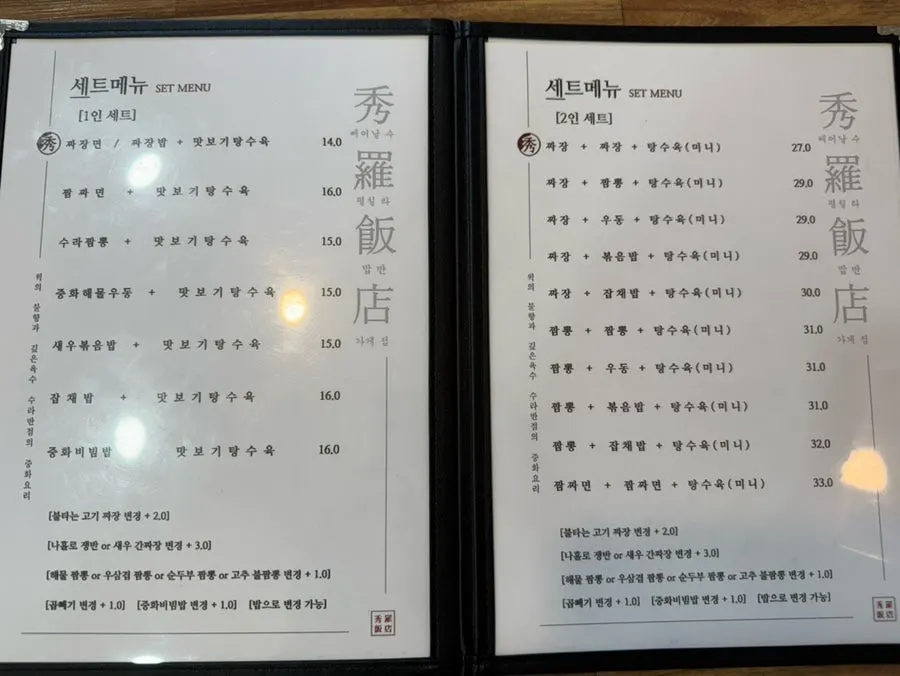 세트메뉴 SET MENU
[1인 세트]
秀 짜장면 / 짜장밥 + 맛보기탕수육 14,0
짬짜면 + 맛보기탕수육 16,0
수라짬뽕 + 맛보기탕수육 15,0
중화해물우동 + 맛보기탕수육 15,0
새우볶음밥 + 맛보기탕수육 15,0
잡채밥 + 맛보기탕수육 16,0
중화비빔밥 맛보기탕수육 16,0
[불타는 고기 짜장 변경 + 2,0]
[나홀로 쟁반 or 새우 간짜장 변경 + 3,0]
[해물 짬뽕 or 우삼겹 짬뽕 or 순두부 짬뽕 or 고추 불짬뽕 변경 + 1,0]
[곱빼기 변경 + 1,0] [중화비빔밥 변경 + 1,0] [밥으로 변경 가능]
웍의 불향과 깊은육수 수라반점의 중화요리
秀
빼어날 수
羅
펼칠 라
飯
밥 반
店
가게 점
秀羅
飯店
세트메뉴 SET MENU
[2인 세트]
秀 짜장 + 짜장 + 탕수육(미니) 27,0
짜장 + 짬뽕 + 탕수육(미니) 29,0
짜장 + 우동 + 탕수육(미니) 29,0
짜장 + 볶음밥 + 탕수육(미니) 29,0
짜장 + 잡채밥 + 탕수육(미니) 30,0
짬뽕 + 짬뽕 + 탕수육(미니) 31,0
짬뽕 + 우동 + 탕수육(미니) 31,0
짬뽕 + 볶음밥 + 탕수육(미니) 31,0
짬뽕 + 잡채밥 + 탕수육(미니) 32,0
짬짜면 + 짬짜면 + 탕수육(미니) 33,0
[불타는 고기 짜장 변경 + 2,0]
[나홀로 쟁반 or 새우 간짜장 변경 + 3,0]
[해물 짬뽕 or 우삼겹 짬뽕 or 순두부 짬뽕 or 고추 불짬뽕 변경 + 1,0]
[곱빼기 변경 + 1,0] [중화비빔밥 변경 + 1,0] [밥으로 변경 가능]
웍의 불향과 깊은육수 수라반점의 중화요리
秀
빼어날 수
羅
펼칠 라
飯
밥 반
店
가게 점
秀羅
飯店